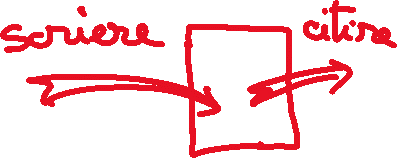 scriere citire